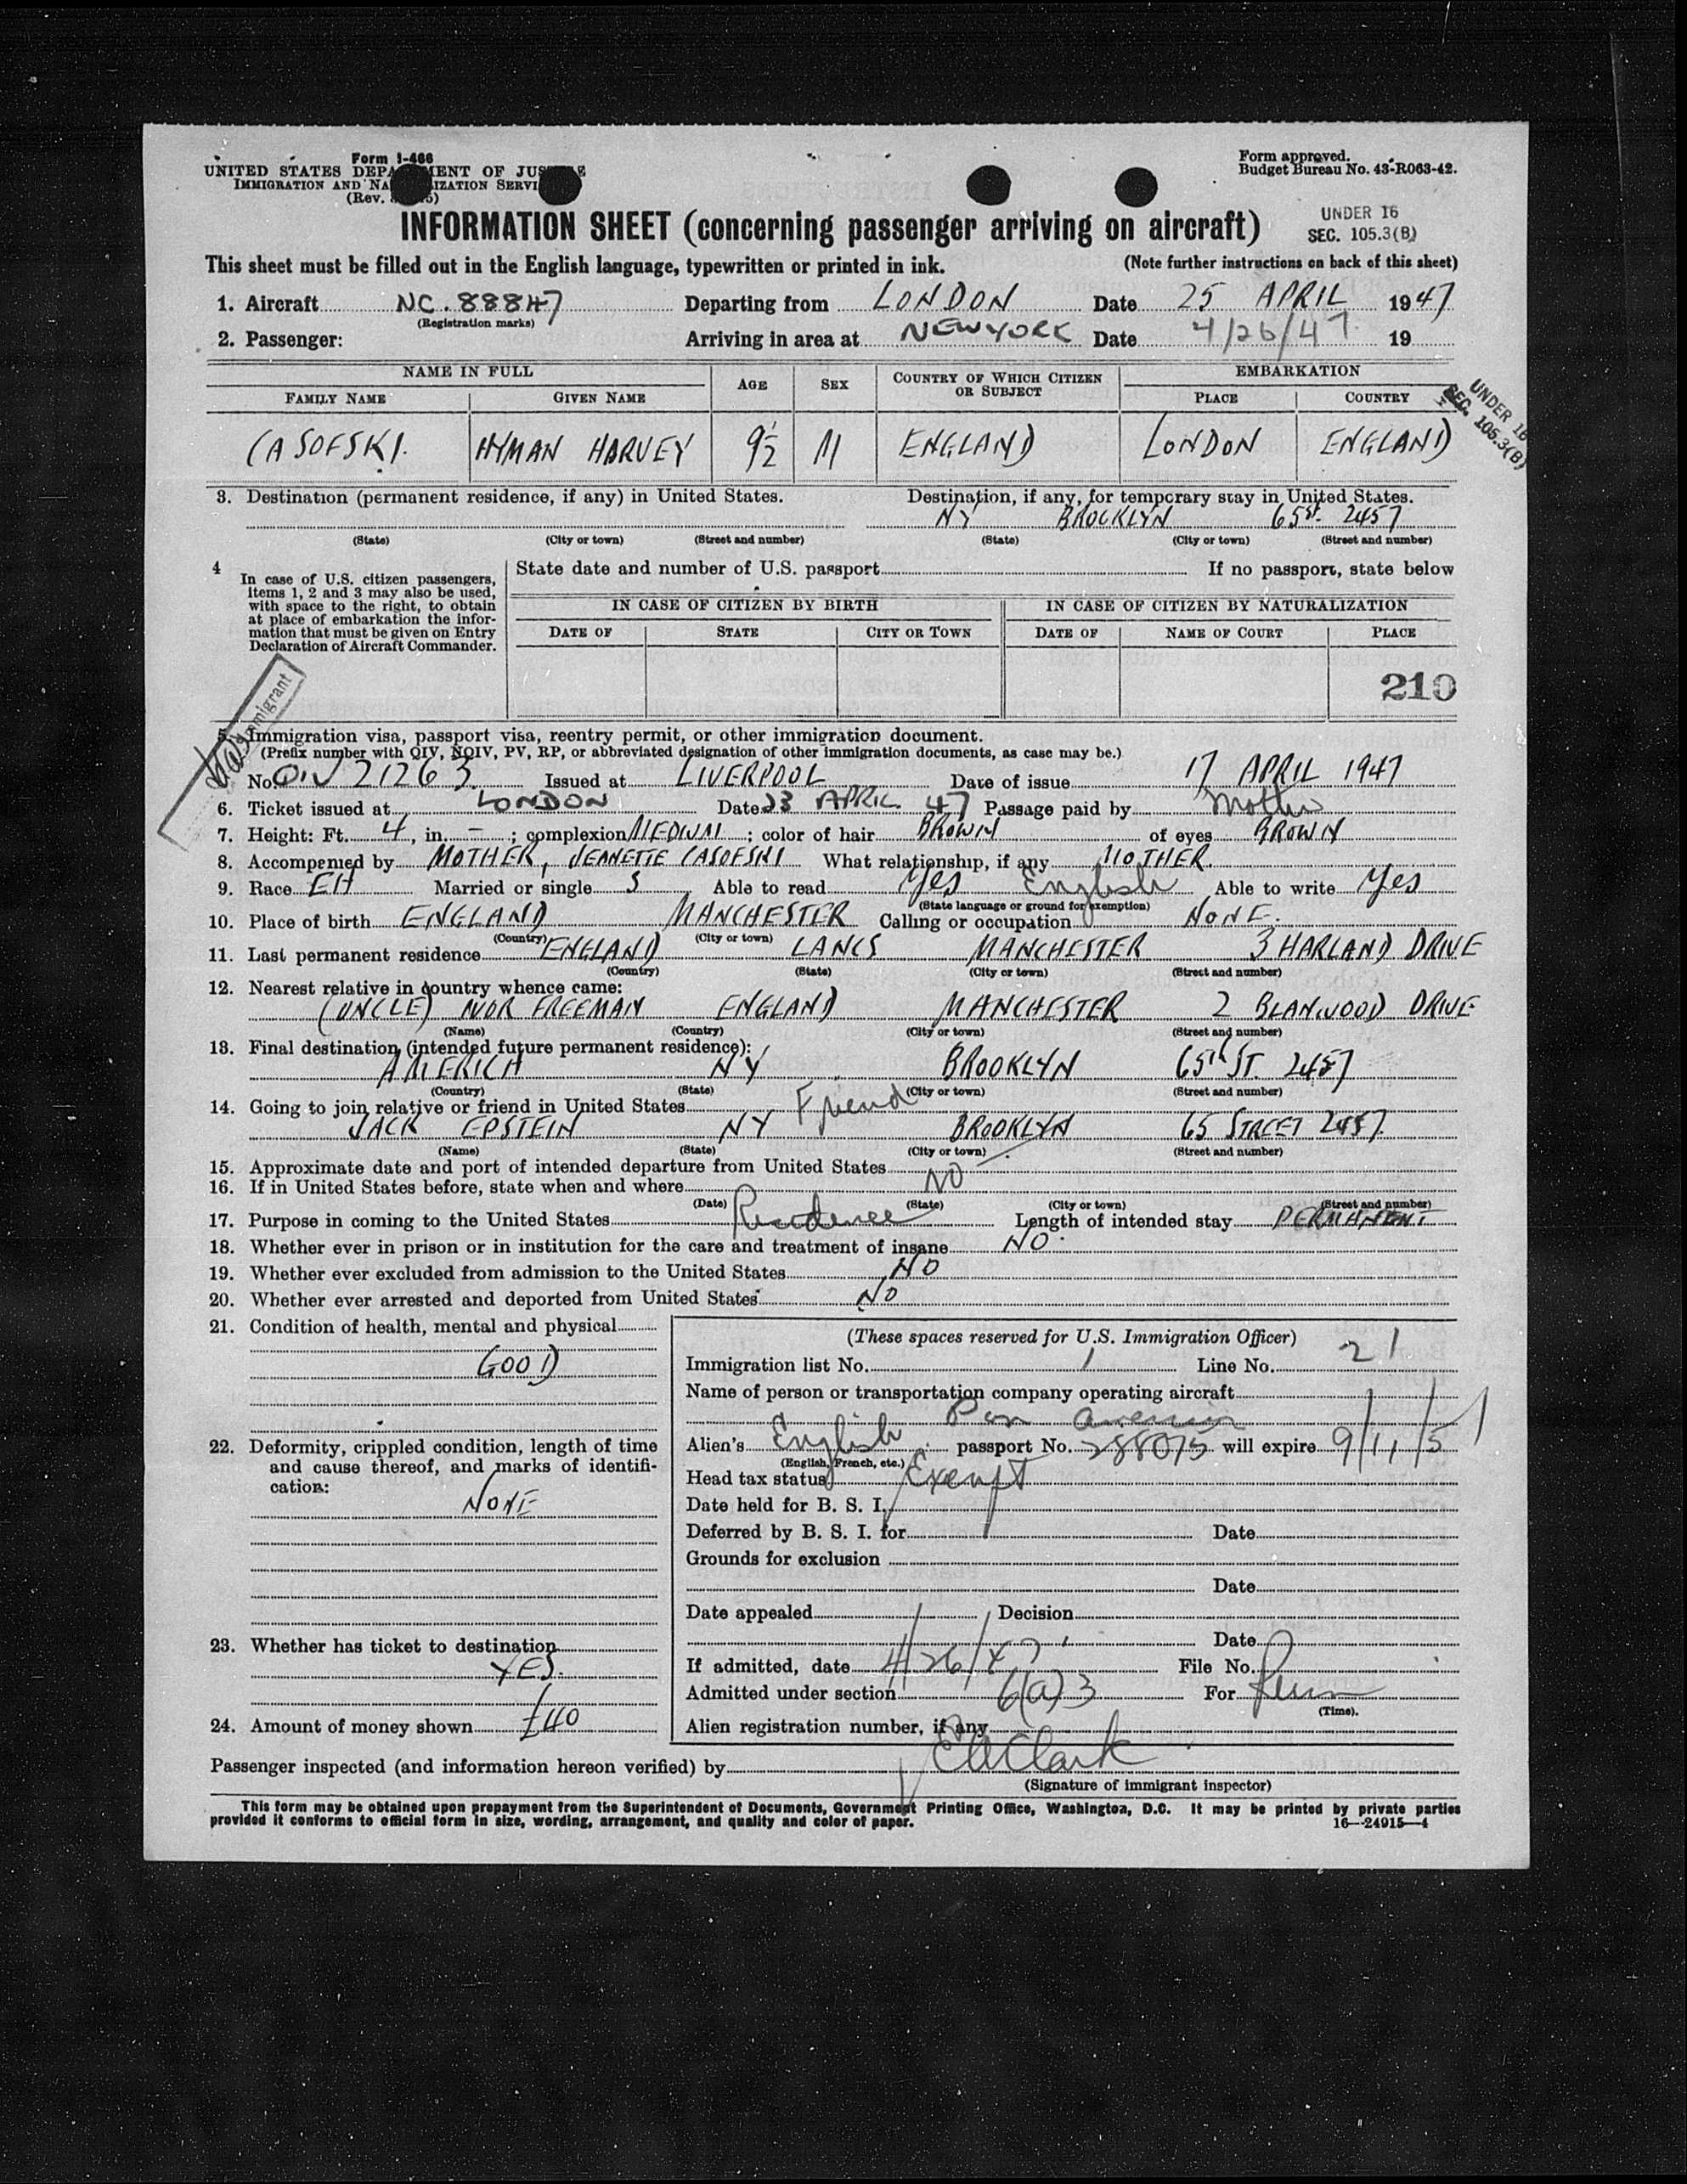 Form I-466
UNITED STATES DEPARTMENT OF JUSTICE
IMMIGRATION AND NATURALIZATION SERVICE
(Rev.
Form approved.
Budget Bureau No. 43-R063-42.
INFORMATION SHEET (concerning passenger arriving on aircraft)
UNDER 16
SEC. 105.3(B)
This sheet must be filled out in the English language, typewritten or printed in ink. (Note further instructions on back of this sheet)
1. Aircraft NC.88847 Departing from LONDON Date 25 APRIL 1947
(Registration marks)
2. Passenger: Arriving in area at NEWYORK Date 4/26/47 19
NAME IN FULL AGE SEX COUNTRY OF WHICH CITIZEN OR SUBJECT EMBARKATION
FAMILY NAME GIVEN NAME PLACE COUNTRY
UNDER 16
SEC. 105.3(B)
CASOFSKI. HYMAN HARVEY 9½ M ENGLAND LONDON ENGLAND
3. Destination (permanent residence, if any) in United States. Destination, if any, for temporary stay in United States.
NY BROOKLYN 65st. 2457
(State) (City or town) (Street and number) (State) (City or town) (Street and number)
4 In case of U.S. citizen passengers, items 1, 2 and 3 may also be used, with space to the right, to obtain at place of embarkation the information that must be given on Entry Declaration of Aircraft Commander.
State date and number of U.S. passport If no passport, state below
IN CASE OF CITIZEN BY BIRTH IN CASE OF CITIZEN BY NATURALIZATION
DATE OF STATE CITY OR TOWN DATE OF NAME OF COURT PLACE
210
Immigrant
5. Immigration visa, passport visa, reentry permit, or other immigration document.
(Prefix number with QIV, NQIV, PV, RP, or abbreviated designation of other immigration documents, as case may be.)
No. QIV 21263 Issued at LIVERPOOL Date of issue 17 APRIL 1947
6. Ticket issued at LONDON Date 23 APRIL 47 Passage paid by Mother
7. Height: Ft. 4, in. - ; complexion MEDIUM ; color of hair BROWN of eyes BROWN
8. Accompanied by MOTHER, JEANETTE CASOFSKI What relationship, if any MOTHER.
9. Race EH Married or single S Able to read Yes English Able to write Yes
(State language or ground for exemption)
10. Place of birth ENGLAND MANCHESTER Calling or occupation NONE.
(Country) (City or town)
11. Last permanent residence ENGLAND LANCS MANCHESTER 3 HARLAND DRIVE
(Country) (State) (City or town) (Street and number)
12. Nearest relative in country whence came:
(UNCLE) IVOR FREEMAN ENGLAND MANCHESTER 2 BLANWOOD DRIVE
(Name) (Country) (City or town) (Street and number)
13. Final destination (intended future permanent residence):
AMERICA NY BROOKLYN 65th ST. 2457
(Country) (State) (City or town) (Street and number)
14. Going to join relative or friend in United States Friend
JACK EPSTEIN NY BROOKLYN 65 STREET 2457.
(Name) (State) (City or town) (Street and number)
15. Approximate date and port of intended departure from United States
16. If in United States before, state when and where NO
(Date) (State) (City or town) (Street and number)
17. Purpose in coming to the United States Residence Length of intended stay PERMANENT
18. Whether ever in prison or in institution for the care and treatment of insane NO
19. Whether ever excluded from admission to the United States NO
20. Whether ever arrested and deported from United States NO
21. Condition of health, mental and physical
GOOD
22. Deformity, crippled condition, length of time
and cause thereof, and marks of identifi-
cation:
NONE
23. Whether has ticket to destination
YES.
24. Amount of money shown £40
(These spaces reserved for U.S. Immigration Officer)
Immigration list No. 1 Line No. 21
Name of person or transportation company operating aircraft
Pan American
Alien's English passport No. 288075 will expire 9/11/51
(English, French, etc.)
Head tax status Exempt
Date held for B. S. I.
Deferred by B. S. I. for Date
Grounds for exclusion
Date
Date appealed Decision
Date
If admitted, date 4/26/47 File No.
Admitted under section 6(a)3 For Perm
(Time).
Alien registration number, if any
Passenger inspected (and information hereon verified) by Clark
(Signature of immigrant inspector)
This form may be obtained upon prepayment from the Superintendent of Documents, Government Printing Office, Washington, D.C. It may be printed by private parties
provided it conforms to official form in size, wording, arrangement, and quality and color of paper. 16—24915—4